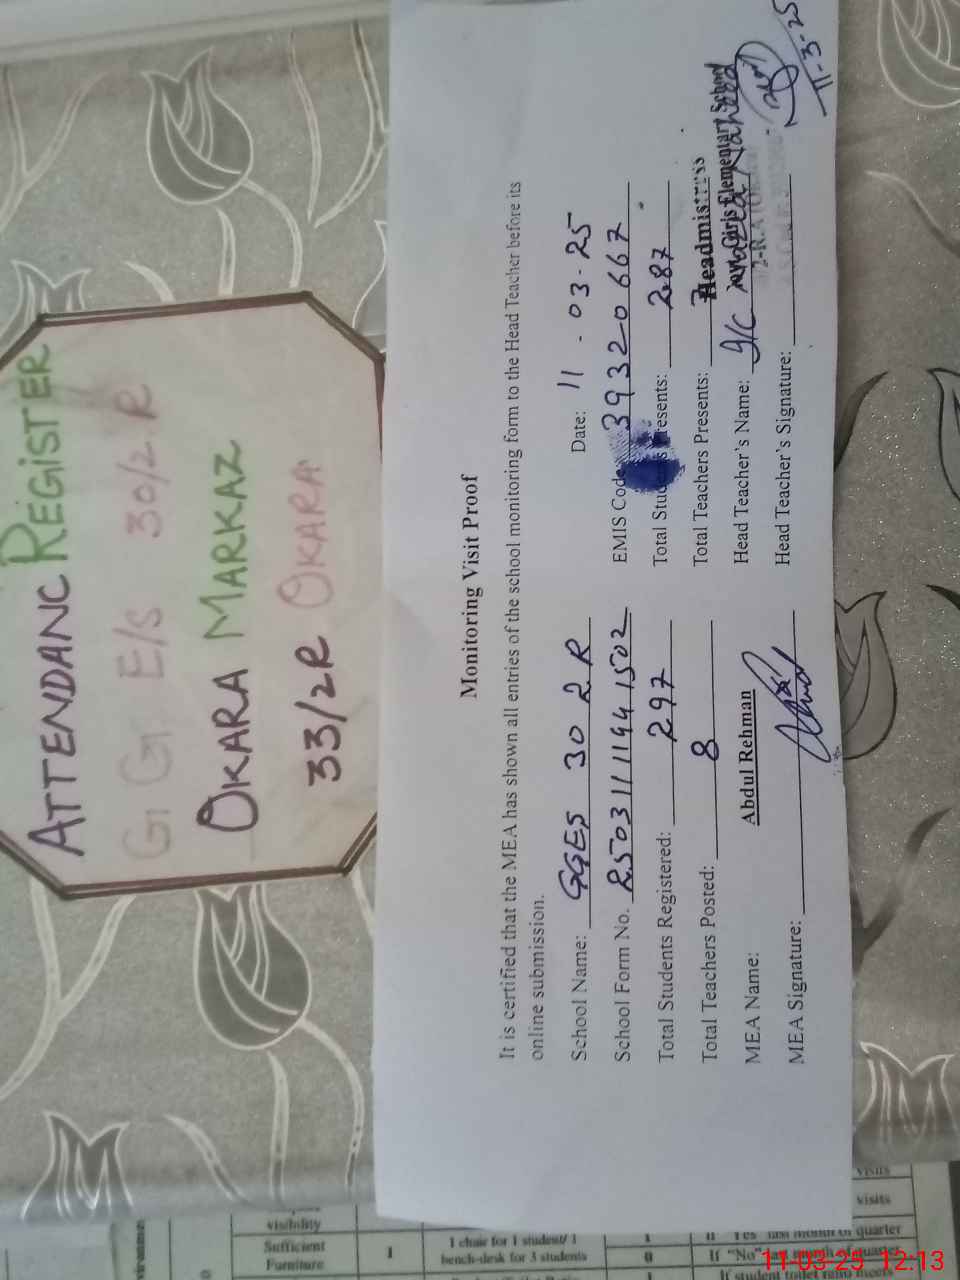 ATTENDANC REGISTER
GG E/S 30/2R
OKARA MARKAZ
33/2R OKARA
Monitoring Visit Proof
It is certified that the MEA has shown all entries of the school monitoring form to the Head Teacher before its
online submission.
School Name: GGES 30 2R Date: 11-03-25
School Form No. 25031111441502 EMIS Code 39320667
Total Students Registered: 297 Total Students Presents: 287
Total Teachers Posted: 8 Total Teachers Presents: 7
Headmistress
MEA Name: Abdul Rehman Head Teacher's Name: I/C
Girls Elementary School
MEA Signature: Head Teacher's Signature:
11-3-25
visibility
visits
Sufficient
Furniture
1
1 chair for 1 student/ 1
bench-desk for 3 students
1
0
quarter
If "No"
11-03-25 12:13